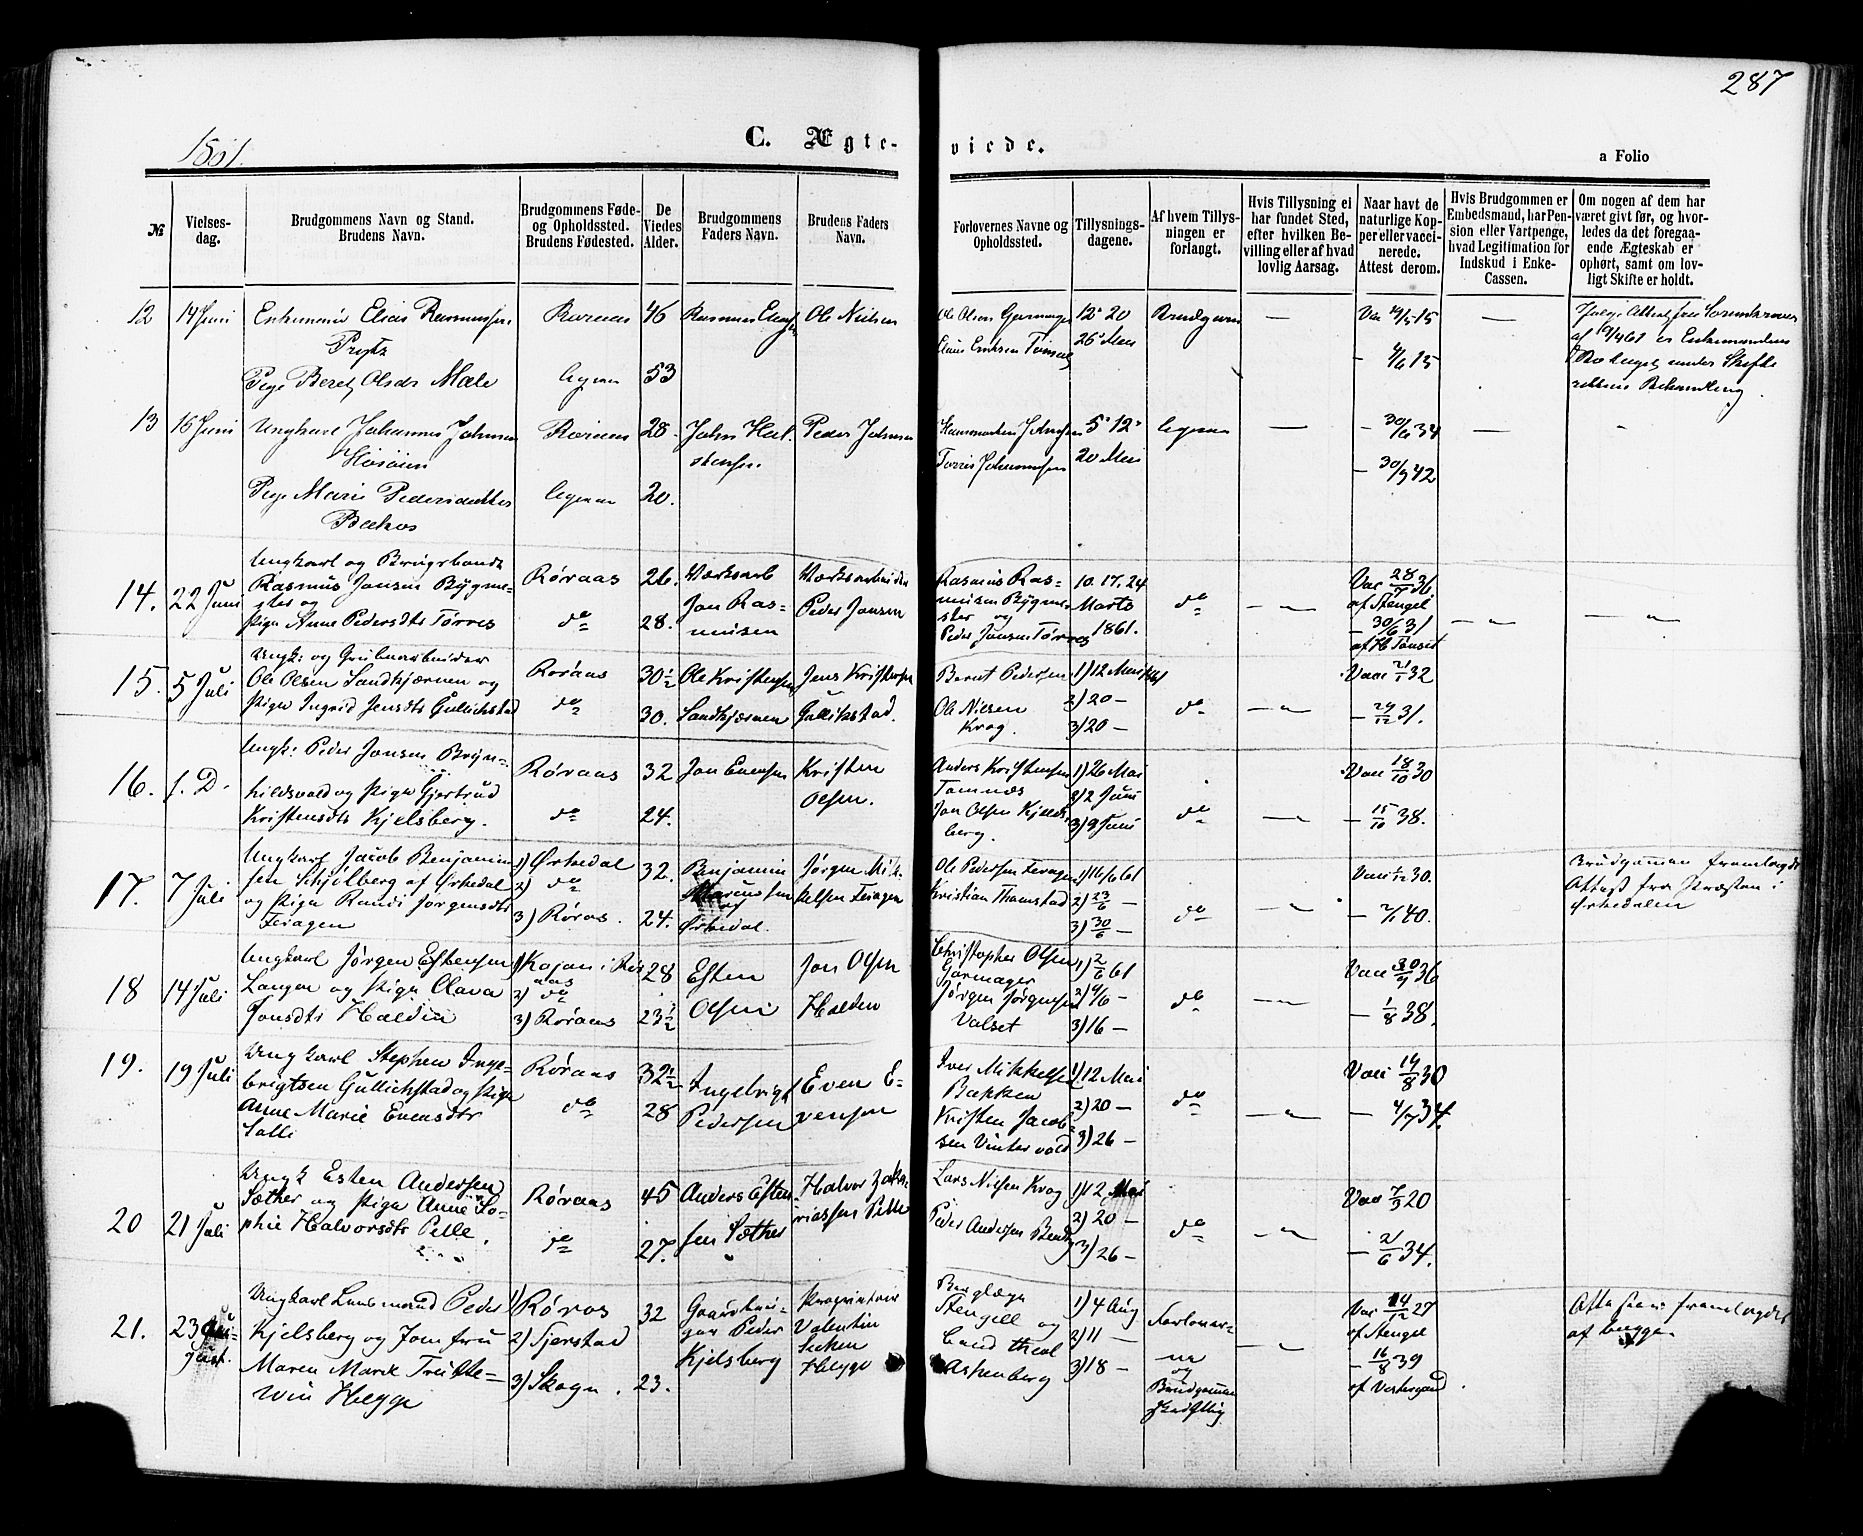 287
1861.
C. Ægte-
viede.
a Folio
№
Vielses-
dag.
Brudgommens Navn og Stand.
Brudens Navn.
Brudgommens Føde-
og Opholdssted.
Brudens Fødested.
De
Viedes
Alder.
Brudgommens
Faders Navn.
Brudens Faders
Navn.
Forlovernes Navne og
Opholdssted.
Tillysnings-
dagene.
Af hvem Tillys-
ningen er
forlangt.
Hvis Tillysning ei
har fundet Sted,
efter hvilken Be-
villing eller af hvad
lovlig Aarsag.
Naar havt de
naturlige Kop-
per eller vacci-
nerede.
Attest derom.
Hvis Brudgommen er
Embedsmand, har Pen-
sion eller Vartpenge,
hvad Legitimation for
Indskud i Enke-
Cassen.
Om nogen af dem har
været givt før, og hvor-
ledes da det foregaa-
ende Ægteskab er
ophørt, samt om lov-
ligt Skifte er holdt.
12
14 Juni
Enkemand Elias Rasmussen
Prytz
Pige Beret Olsdr Mæle
Røraas
46
53
Rasmus
Ole Nielsen
Ole Olsen Garmager
12' 20
26' Mai
Brudgom
15
15
13
16 Juni
Ungkarl Johannes Johnsen
Høsøien
Pige Marie Pedersdatter
Røraas
28.
20.
John Hal-
stensen.
Peder Johnsen
5' 12'
20 Mai
30/6 34
30/9 42
14.
22 Juni
Ungkarl og Brugsbonde
Rasmus Jonsen Bygme-
ster og
Pige Anne Pedersdtr Tørres
Røraas
do
26.
28.
Værksarb
Jon Ras-
musen
Værksarbeider
Peder Jonsen
Rasmus Ras-
musen Bygme-
ster og
Peder Jonsen Tørres
10. 17. 24
Marts
1861.
do
Vac 28/7 36
af Stengel
30/6 31
af H Tønset
15.
5 Juli
Ungk: og Grubearbeider
Ole Olsen Sandkjærnen og
Pige Ingrid Jensdtr Gullichstad
Røraas
do
30½
30.
Ole Kristensen
Sandkjærnen
Jens Kristensen
Gullikstad.
Bernt Pedersen
Ole Nilsen
Krog.
1) 12 Mai
2) 20 —
3) 20 —
do
Vac 21/1 32
29/12 31.
16.
s. D.
Ungk: Peder Jonsen Bryn-
hildsvold og Pige Gjertrud
Kristensdtr Kjelsberg.
Røraas
do
32
24.
Jon Evensen
Kristen
Olsen.
Anders Kristensen
Tamnæs
Jon Olsen Kjels-
berg.
1) 26 Mai
2) 2 Juni
3) 9 Juni
do
Vac 18/10 30
15/10 38.
17.
7 Juli
Ungkarl Jacob Benjamin-
sen Schjølberg af Ørkedal
og Pige Randi Jørgensdtr
Feragen
1) Ørkedal
2) do
3) Røros.
32.
24.
Benjamin
Ørkedal.
Jørgen Mik-
kelsen Feragen
Ole Pedersen Feragen
Kristian Thomstad
1) 16/6 61
2) 23/6 —
3) 30/6 —
do
Vac 1/12 30.
2/1 40.
Brudgommen fremlagde
Attest fra Præsten i
Ørkedalen
18
14 Juli
Ungkarl Jørgen Estensen
Langen og Pige Olava
Jonsdtr Halden
2) do
3) Røraas
28
23½
Esten
Olsen
Jon Olsen
Halden
Christopher Olsen
Garmager
Jørgen Jørgensen
Valset
1) 2/6 61
2) 9/6 —
3) 16 —
do
Vac 30/9 36
1/8 38.
19.
19 Juli
Ungkarl Stephen Inge-
brigtsen Gullichstad og Pige
Anne Marie Evensdtr
Galli
Røraas
do
32½
28
Ingebrigt
Pedersen
Even E-
vensen
Iver Mikkelsen
Bakken
Kristen Jacob-
sen Vintervold
1) 12 Mai
2) 20 —
3) 26 —
do
Vac 14/8 30
4/7 34.
20
21 Juli
Ungk Esten Andersen
Sæther og Pige Anne So-
phie Halvorsdtr Pelle.
Røraas
do
45
27.
Anders Esten-
sen Sæther
Halvor Zaka-
riassen Pelle
Lars Nielsen Krog
Peder Andersen
1) 12 Mai
2) 20 —
3) 26 —
do
Vac 7/9 20
2/6 34.
21.
23 Au-
gust.
Ungkarl Lensmand Peder
Kjelsberg og Jomfru
Maren Marie
Hegge
1) Røros
2) Tjerstad
3) Skogn.
32
23.
Gaardbru-
ger Peder
Kjelsberg
Proprietair
Valentin
Hegge
Berglæge
Stengell og
Cand theol
Aspenberg
1) 4 Aug
2) 11 —
3) 18 —
Forlover-
ne
og
Brudgommen
skriftlig
Vac 14/12 27
af Stengel
16/8 39
Attester fremlagdes
af begge.